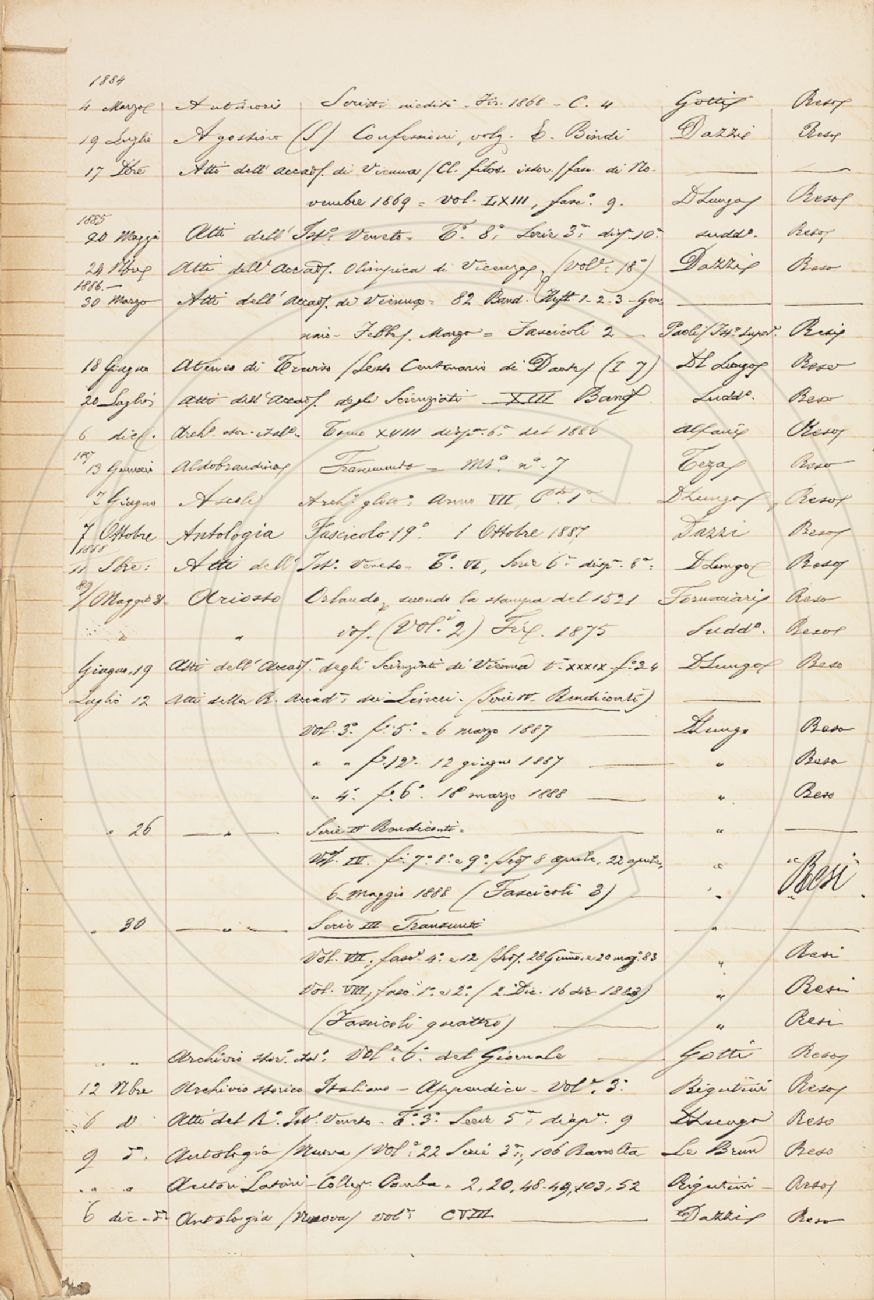 1884
4 Marzo Antinori Scritti inediti - Fir. 1868 - C. 4 Gotti Reso
19 Luglio Agostino (S) Confessioni, volg. E. Bindi Dazzi Reso
17 Atti dell' accad. di Vienna / Cl. filos. istor. / fasc. di No-
vembre 1869 = Vol. LXIII, fasc. 9. DLungo Reso
1885
20 Maggio Atti dell' Ist. Veneto - T. 8, Serie 3, disp. 10 sudd. Reso
24 Atti dell' Accad. Olimpica di Vicenza, (vol. 18) Dazzi Reso
1886 -
30 Marzo Atti dell' accad. di Vienna = 82 Band. Heft 1-2-3 - Gen-
naio - Febb. Marzo = Fascicoli 2 Paoli / Ist. Super. Resi
18 Giugno Ateneo di Treviso / Sesto Centenario di Dante / (I 7) Del Lungo Reso
20 Luglio Atti dell' Accad. degli Scienziati XIII Band Sudd. Reso
6 dic. Arch. stor. ital. Tomo XVIII disp. 6 del 1886 Alfani Reso
187
13 Gennaio Aldobrandino Frammento = Ms. n. 7 Teza Reso
7 Giugno Ascoli Arch. glott. Anno VII, 1 DLungo Reso
7 Ottobre Antologia Fascicolo 19. 1 Ottobre 1887 Dazzi Reso
1888
11 Atti dell' Ist. Veneto - T. VI, Serie 6 disp. 6 DLungo Reso
89
/Maggio 31 Ariosto Orlando, secondo la stampa del 1521 Fornaciari Reso
" " (Vol. 2) 1875 Sudd. Reso
Giugno 19 Atti dell' Accad. degli Scienziati di Vienna t. XXXIX f. 24 DLungo Reso
Luglio 12 Atti della R. Accad. dei Lincei - (Serie IV. Rendiconti)
Vol. 3. f. 5. - 6 marzo 1887 DLungo Reso
" " f. 12. 12 giugno 1887 " Reso
" 4. f. 6. 18 marzo 1888 " Reso
" 26 " Serie IV Rendiconti. "
Vol. IV. f. 7. 8. e 9. 8 aprile, 22 aprile, " " Resi "
6 Maggio 1888 (Fascicoli 3) "
" 30 " Serie III Transunti "
Vol. VII, fasc. 4. e 12 20 mag. 83 " Resi
Vol. VIII, fasc. 1. e 2. (2 Dic. 16 dic. 1883) " Resi
(Fascicoli quattro) " Resi
" " Archivio stor. ital. Vol. 6. del Giornale Gotti Reso
12 Nbre Archivio storico Italiano - Appendice - Vol. 3. Rigutini Reso
6 d Atti del R. Ist. Veneto - T. 3. Serie 5, disp. 9 DLungo Reso
9 Antologia / Nuova / Vol. 22 Serie 3, 106 Raccolta Le Brun Reso
" " Autori Latini - Collez. Pomba - 2, 20, 48-49, 103, 52 Rigutini - Reso
6 dic. Antologia / Nuova / vol. CVIII Dazzi Reso